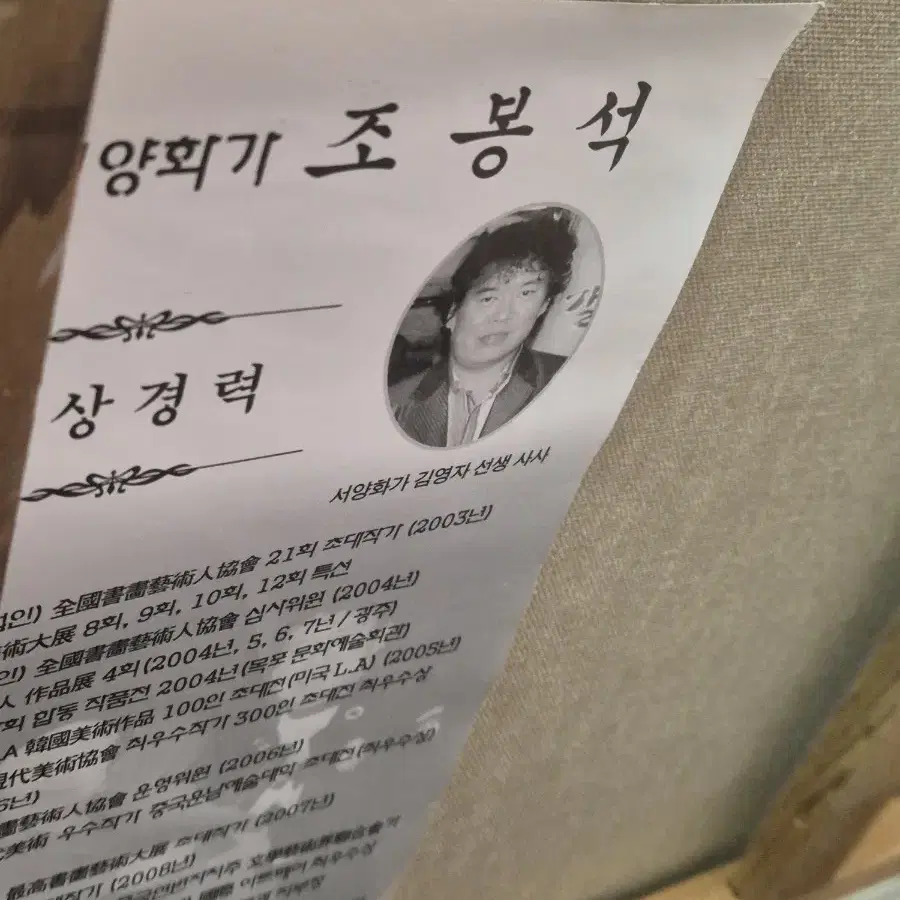 양화가 조봉석
상경력
서양화가 김영자 선생 사사
인) 全國書畵藝術人協會 21회 초대작가 (2003년)
術大展 8회, 9회, 10회, 12회 특선
인) 全國書畵藝術人協會 심사위원 (2004년)
人 作品展 4회 (2004년, 5, 6, 7년 / 광주)
회 합동 작품전 2004년 (목포 문화예술회관)
A 韓國美術作品 100인 초대전 (미국 L.A) (2005년)
現代美術協會 최우수작가 300인 초대전 최우수상
년)
畵藝術人協會 운영위원 (2006년)
美術 우수작가 중국운남예술대학 초대전 (최우수상)
最高書畵藝術大展 초대작가 (2007년)
작가 (2008년)
최우수상